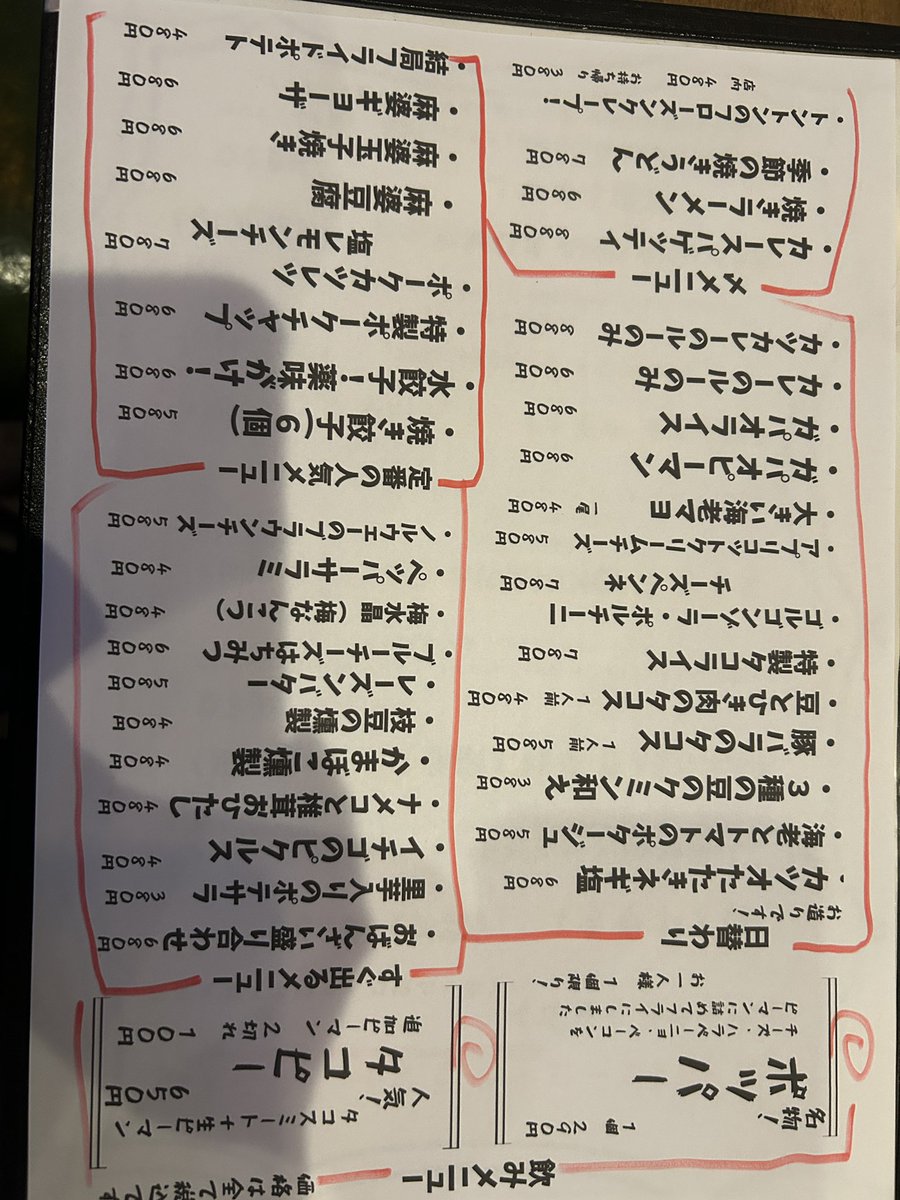 飲みメニュー
価格は全て税込です
名物!
1個 290円
ポッパー
チーズ・ハラペーニョ・ベーコンを
ピーマンに詰めてフライにしました
お一人様 1個限り!
タコスミート+生ピーマン
人気! 650円
タコピー
追加ピーマン 2切れ 100円
日替わり
お造りです!
・カツオたたきネギ塩 680円
・海老とトマトのポタージュ 580円
・3種の豆のクミン和え 380円
・豚バラのタコス 1人前 580円
・豆とひき肉のタコス 1人前 480円
・特製タコライス 780円
・ゴルゴンゾーラ・ポルチーニ
チーズペンネ 780円
・アプリコットクリームチーズ 580円
・大きい海老マヨ 一尾 480円
・ガパオピーマン 680円
・ガパオライス 680円
・カレーのルーのみ 680円
・カツカレーのルーのみ 880円
〆メニュー
・カレースパゲッティ 880円
・焼きラーメン 680円
・季節の焼きうどん 780円
・トントンのフローズンクレープ!
店内 480円 お持ち帰り 380円
すぐ出るメニュー
・おばんざい盛り合わせ 680円
・里芋入りのポテサラ 380円
・イチゴのピクルス 480円
・ナメコと椎茸おひたし 480円
・かまぼこ燻製 480円
・枝豆の燻製 480円
・レーズンバター 580円
・ブルーチーズはちみつ 680円
・梅水晶(梅なんこつ) 480円
・ペッパーサラミ 480円
・ノルウェーのブラウンチーズ 580円
定番の人気メニュー
・焼き餃子(6個) 580円
・水餃子!薬味がけ! 680円
・特製ポークチャップ 680円
・ポークカツレツ
塩レモンチーズ 780円
・麻婆豆腐 680円
・麻婆玉子焼き 680円
・麻婆ギョーザ 680円
・結局フライドポテト 480円